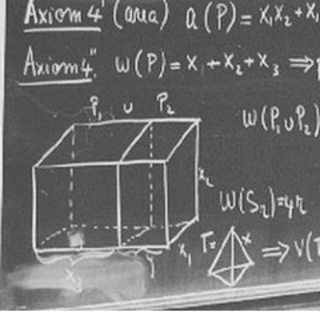 Axiom 4' (area) a(P) = x₁x₂ + x₁
Axiom 4". w(P) = x₁ + x₂ + x₃ ⇒
P₁ ∪ P₂
w(P₁∪P₂)
x₂
w(S₂)=4r
x₁ T= x ⇒ v(T
x₃